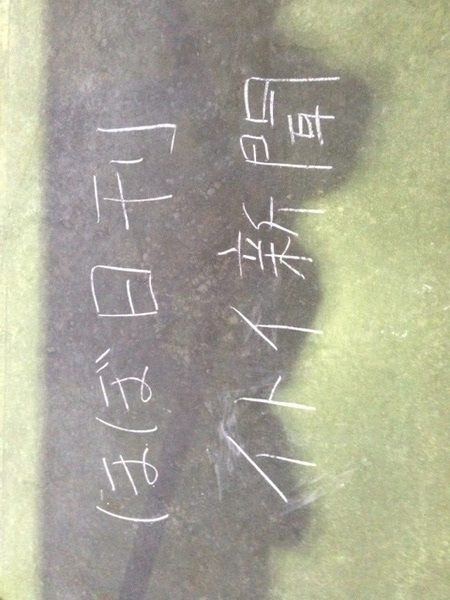 ほぼ日刊
イトイ新聞